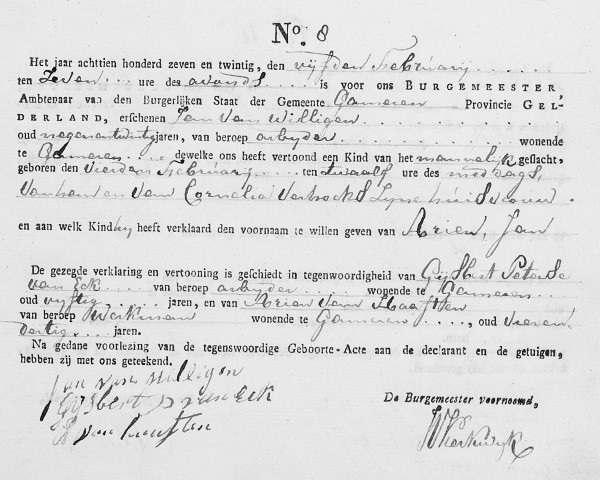 No. 8
Het jaar achttien honderd zeven en twintig, den vijfden Februarij
ten Zeven ure des avonds is voor ons BURGEMEESTER,
Ambtenaar van den Burgerlijken Staat der Gemeente Gameren Provincie GEL-
DERLAND, erschenen Jan van Willigen
oud negenentwintig jaren, van beroep arbyder wonende
te Gameren dewelke ons heeft vertoond een Kind van het mannelyk geslacht,
geboren den vierden Februarij ten twaalf ure des middags,
van hem en van Cornelia Verhoeks Zyne huisvrouw
en aan welk Kind hy heeft verklaard den voornaam te willen geven van Arien, Jan
De gezegde verklaring en vertooning is geschiedt in tegenwoordigheid van Gijsbert Peterse
van Eck van beroep arbyder wonende te Gameren
oud vyftig jaren, en van Arien van Haaften
van beroep Werkman wonende te Gameren, oud Vieren
dertig jaren.
Na gedane voorlezing van de tegenswoordige Geboorte-Acte aan de declarant en de getuigen,
hebben zij met ons geteekend.
Jan van Willigen
Gijsbert P van Eck
A van Haaften
De Burgemeester voornoemd,